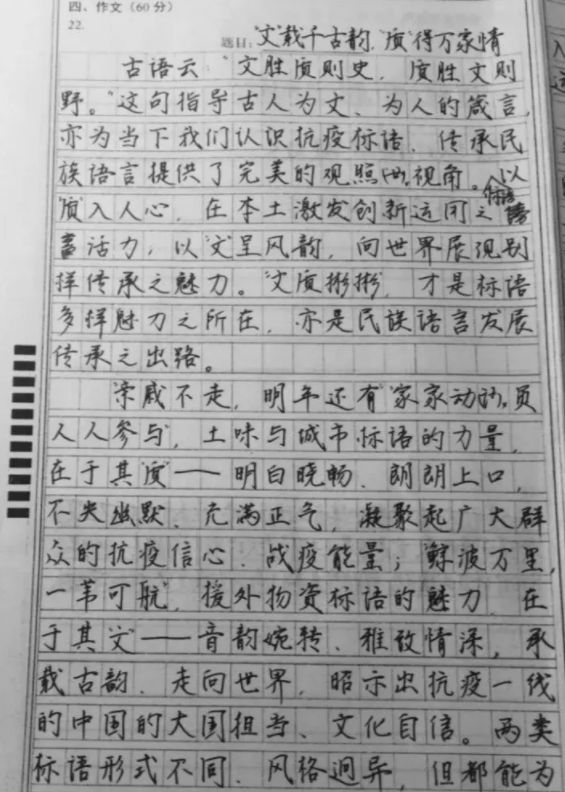 四、作文（60分）
22.
题目："文"载千古韵，"质"得万家情
古语云："文胜质则史，质胜文则
野。"这句指导古人为文、为人的箴言，
亦为当下我们认识抗疫标语、传承民
族语言提供了完美的观照视角。以
"质"入人心，在本土激发创新运用之标语
活力，以"文"呈风韵，向世界展现别
样传承之魅力。"文质彬彬"，才是标语
多样魅力之所在，亦是民族语言发展
传承之出路。
"亲戚不走，明年还有""家家动员
人人参与"，土味与城市标语的力量，
在于其"质"——明白晓畅、朗朗上口，
不失幽默、充满正气，凝聚起广大群
众的抗疫信心、战疫能量；"鲸波万里，
一苇可航"，援外物资标语的魅力，在
于其"文"——音韵婉转、雅致情深，承
载古韵、走向世界，昭示出抗疫一线
的中国的大国担当、文化自信。两类
标语形式不同、风格迥异，但都能为
入